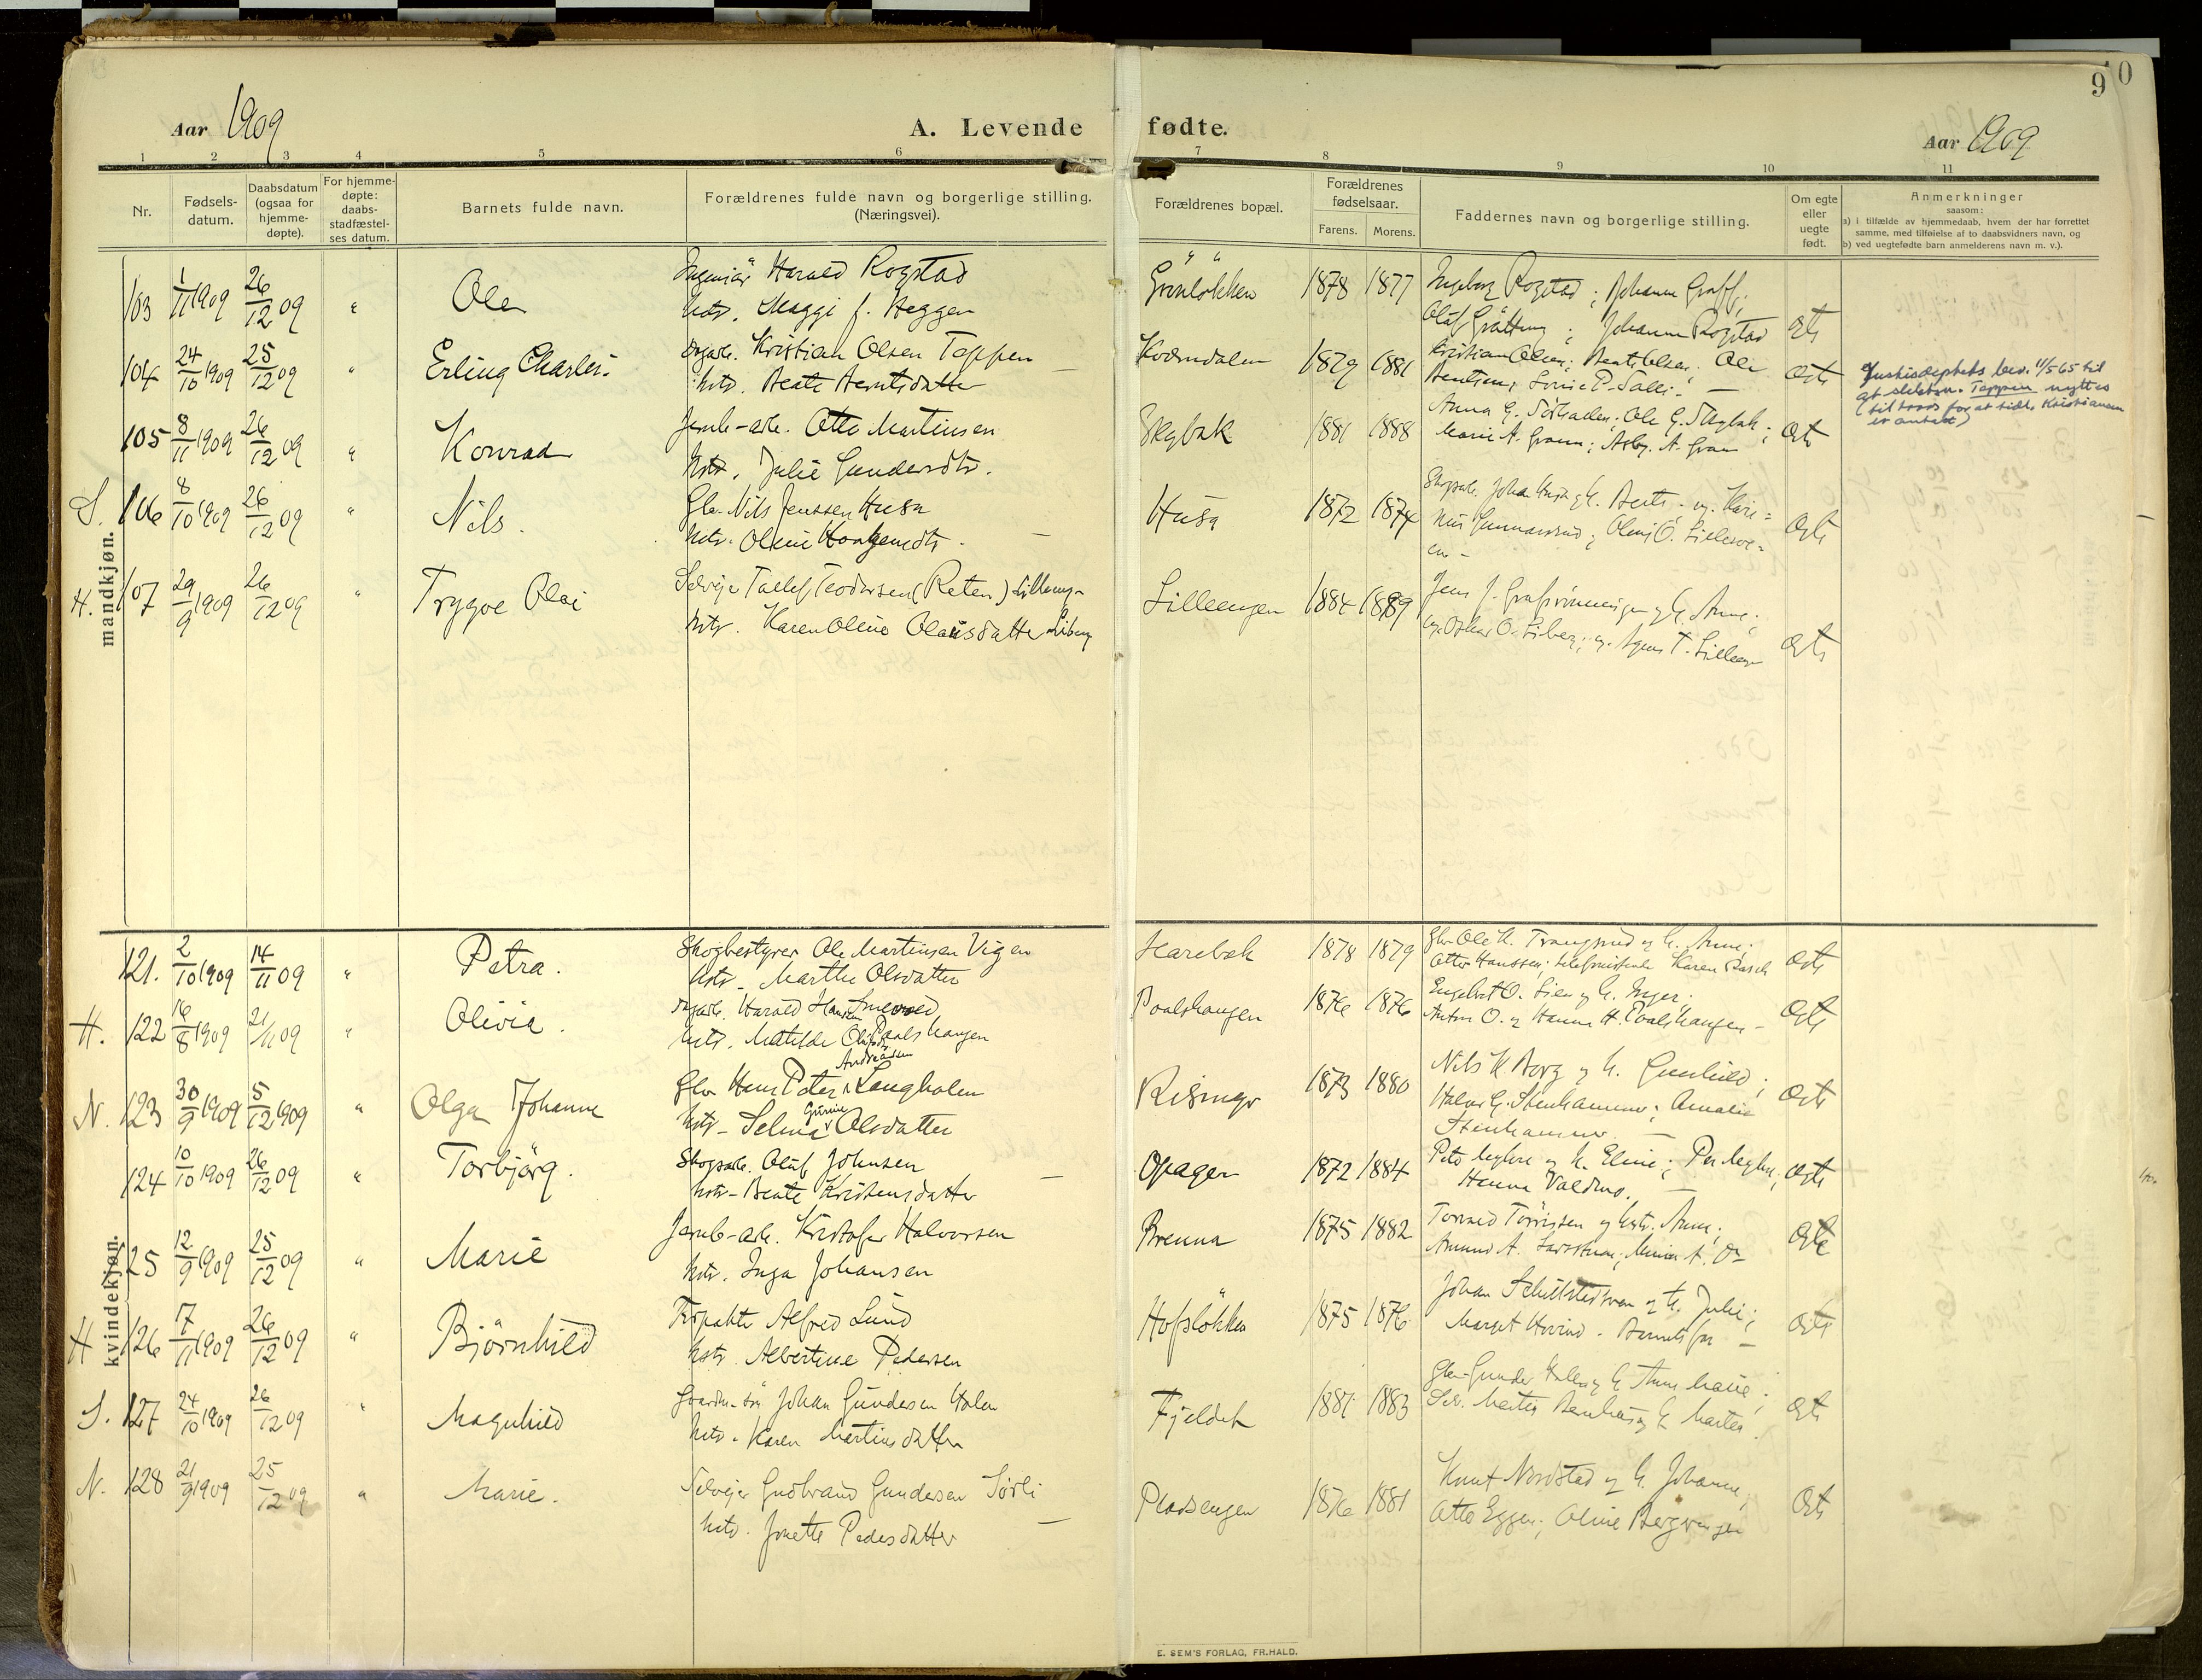 9
0
Aar 1909
A. Levende fødte.
Aar 1909
1 2 3 4 5 6 7 8 9 10 11
Nr.
Fødsels-
datum.
Daabsdatum
(ogsaa for
hjemme-
døpte).
For hjemme-
døpte:
daabs-
stadfæstel-
ses datum.
Barnets fulde navn.
Forældrenes fulde navn og borgerlige stilling.
(Næringsvei).
Forældrenes bopæl.
Forældrenes
fødselsaar.
Farens. Morens.
Faddernes navn og borgerlige stilling.
Om egte
eller
uegte
født.
Anmerkninger
saasom:
a) i tilfælde av hjemmedaab, hvem der har forrettet
samme, med tilføielse af to daabsvidners navn, og
b) ved uegtefødte barn anmelderens navn m. v.).
mandkjøn.
103 1/11 1909 26/12 09 " Ole
Ingeniør Harald Rogstad
Hstr. Maggi f. Heggen
Grønløkken 1878 1877
Ingeborg Rogstad; Johanne Graff;
Oluf Gråtting; Johanne Rogstad
Egte
104 24/10 1909 25/12 09 " Erling Charles.
Dagarb. Kristian Olsen Teppen
Hstr. Beate Berntsdatter
Kværndalen 1879 1881
Kristian Olsen; Ole
Berntsen;
Egte
Justisdeptets bev. 11/5 65 til
at slektsn. Teppen nyttes
(til tross for at tidl. Kristiansen
er antatt)
105 8/11 1909 26/12 09 " Konrad
Jernb-arb. Otto Martinsen
Hstr. Julie Gundersdtr.
Skybak 1881 1888
Anna G. Ole G. Skybak;
Marie A. Gran; Asbj. A. Gran
Egte
S. 106 8/10 1909 26/12 09 " Nils.
Gbr. Nils Jenssen Husa
Hstr. Oline Haagensdtr.
Husa 1872 1874
Skogarb. Johan
Gunnarsrud; Oline O.
Egte
H. 107 29/9 1909 26/12 09 " Trygve Olai
Selveier Tallef Teodorsen (Reten) Lilleeng-
Hstr. Karen Oline Olausdatter Liberg
Lilleengen 1884 1889
Jens J. og h. Anne;
Oskar O. Liberg; Agnes T. Lilleeng
Egte
kvindekjøn.
121. 2/10 1909 14/11 09 " Petra.
Skogbestyrer Ole Martinsen Vigen
Hstr. Marthe Olsdatter
Harebæk 1878 1879
Gbr. Ole K. og h. Anne;
Otter Hanssen; telefonistinde Karen Rasch
Egte
H. 122 16/8 1909 21/11 09 " Olivia.
Dagarb. Harald Hansen
Hstr. Matilde Olufsdtr. Paalshaugen
Poalshaugen 1876 1876
Engebret O. Lien og h. Inger.
Anton O. og Hanna H. Poalshaugen -
Egte
N. 123 30/9 1909 5/12 1909 " Olga Johanne
Gbr Hans Peter Andreassen Langholen
Hstr - Selma Gurine Olsdatter
Risinge 1873 1880
Nils K. Borg og h. Gunhild;
Halvor G. Stenhammer; Amalie
Stenhammer.
Egte
124 10/10 1909 26/12 09 " Torbjörg.
Skogarb. Oluf Johnsen
Hstr - Beate Kristensdatter
Opager 1872 1884
Peter Mykre og h. Eline; Per Mykre;
Hanna Valdmo.
Egte
125 12/9 1909 25/12 09 " Marie
Jernb-arb. Kristofer Halvorsen
Hstr. Inga Johansen
Brenna 1875 1882
Tormod Tørrissen og Hstr. Anne;
Amund A.
Egte
H 126 17/11 1909 26/12 09 " Björnhild
Forpakter Alfred Lund
Hstr. Albertine Pedersen
Hofsløkken 1875 1876
Johan og h. Julie;
Margit Hovind. Barnets far -
Egte
S. 127 24/10 1909 26/12 09 " Magnhild
Johan Gundersen Holen
Hstr. Karen Martinsdatter
Fjeldet 1881 1883
Gbr Gunder Holen og h. Anne Marie;
Selv. Martin og h. Martea.
Egte
N. 128 21/9 1909 25/12 09 " Marie.
Selveier Gudbrand Gundersen Sørli
Hstr. Jonette Pedersdatter
Plassengen 1876 1881
Knut Nordstad og h. Johanne;
Otto Eggen; Oline Bergvengen
Egte
E. SEM'S FORLAG, FR.HALD.